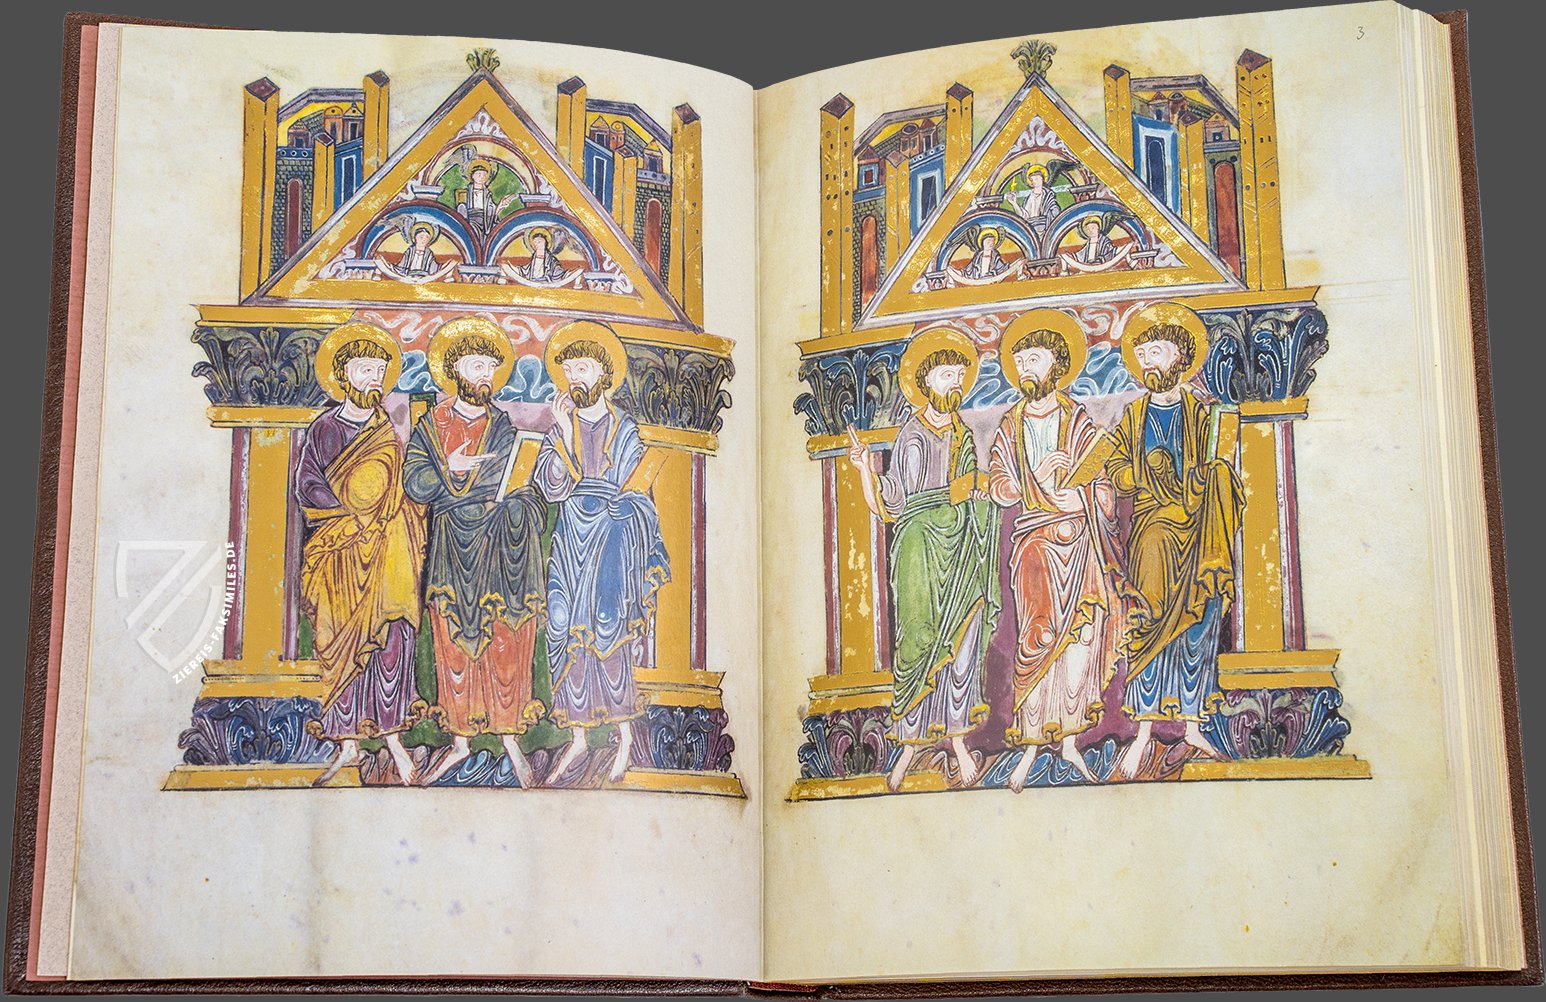 3
ZIEREIS-FAKSIMILES.DE